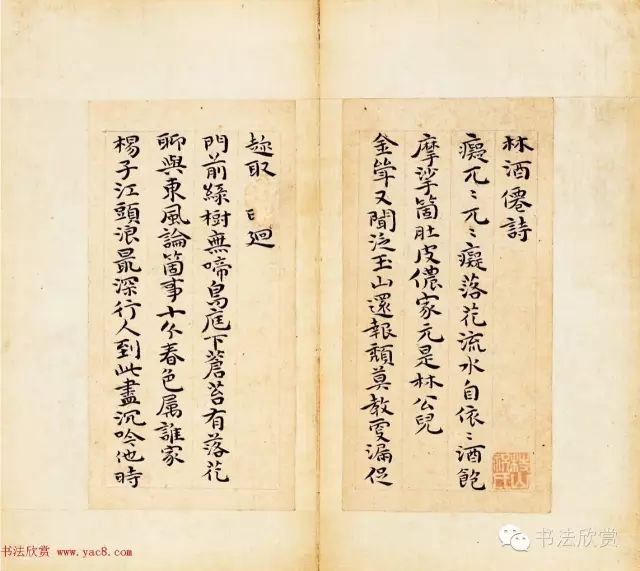 林酒僊詩
癡兀〻兀〻癡落花流水自依〻酒飽
摩挲箇肚皮儂家元是林公兒
金斝又聞泛玉山還報頹莫教更漏促
趂取 廻
門前綠樹無啼鳥庭下蒼苔有落花
聊與東風論箇事十分春色属誰家
楊子江頭浪最深行人到此盡沉吟他時
书法欣赏 www.yac8.com
书法欣赏